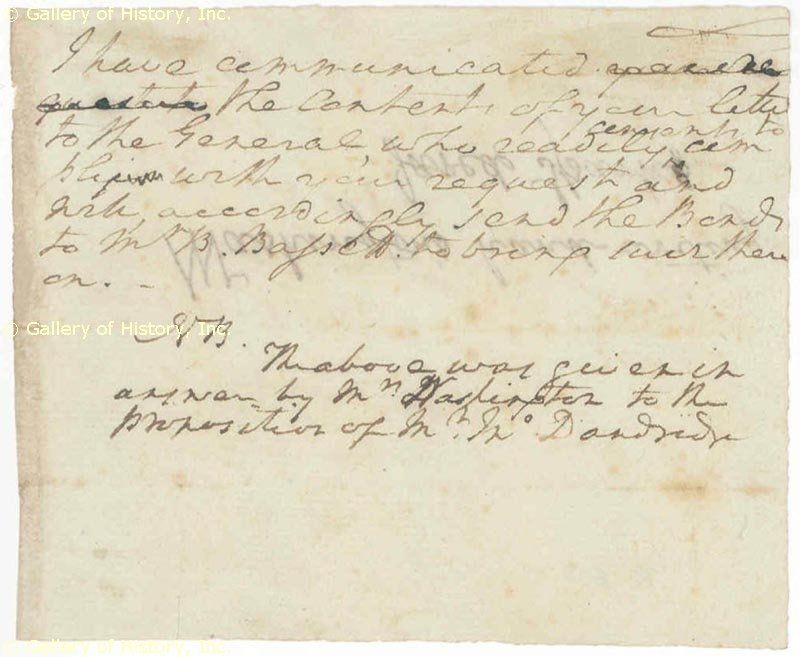 © Gallery of History, Inc.
I have communicated your re
quest to the Contents of your letter
to the General who readily
consents to
com
ply with your request and
will, accordingly send the Bonds
to Mr. B. Bassett. to bring suit there
on. -
© Gallery of History, Inc.
NB.
The above was given in
answer by Mrs Washington to the
proposition of Mr. Jno. Dandridge
© Gallery of History, Inc.